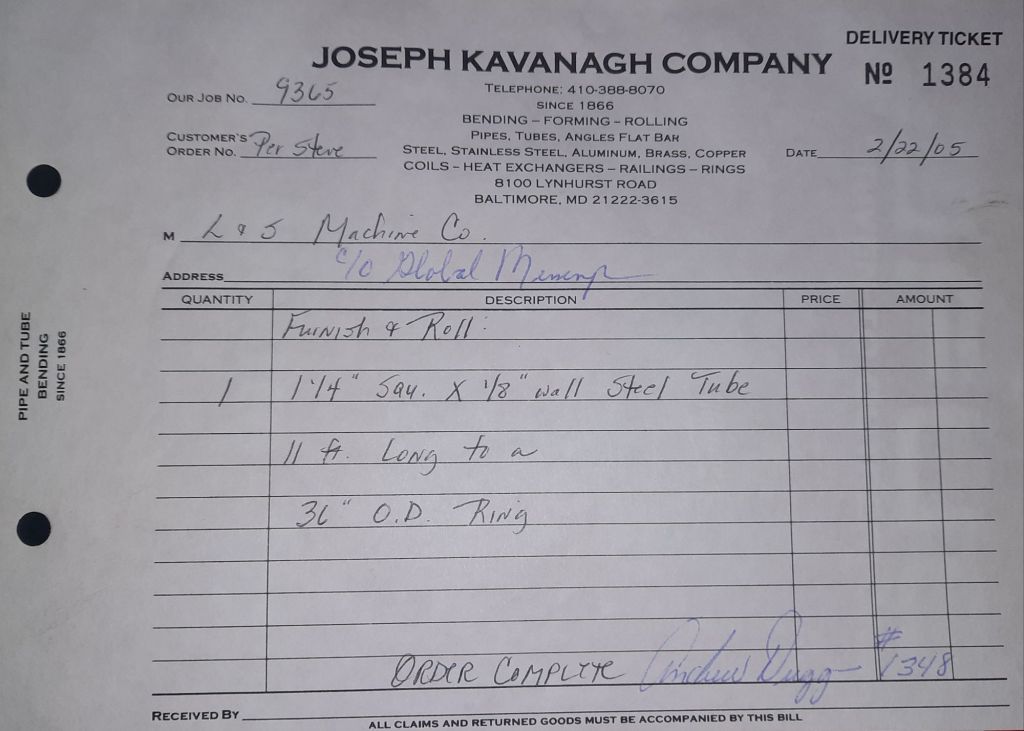 DELIVERY TICKET
JOSEPH KAVANAGH COMPANY
Nº 1384
TELEPHONE: 410-388-8070
OUR JOB NO. 9365
SINCE 1866
BENDING – FORMING – ROLLING
PIPES, TUBES, ANGLES FLAT BAR
CUSTOMER'S
ORDER NO. Per Steve
STEEL, STAINLESS STEEL, ALUMINUM, BRASS, COPPER
DATE 2/22/05
COILS – HEAT EXCHANGERS – RAILINGS – RINGS
8100 LYNHURST ROAD
BALTIMORE, MD 21222-3615
M L & S Machine Co.
ADDRESS c/o Global
QUANTITY DESCRIPTION PRICE AMOUNT
Furnish & Roll:
1 1 1/4" Squ. X 1/8" wall Steel Tube
11 ft. Long to a
36" O.D. Ring
ORDER COMPLETE Andrew #
1348
RECEIVED BY
ALL CLAIMS AND RETURNED GOODS MUST BE ACCOMPANIED BY THIS BILL
PIPE AND TUBE
BENDING
SINCE 1866